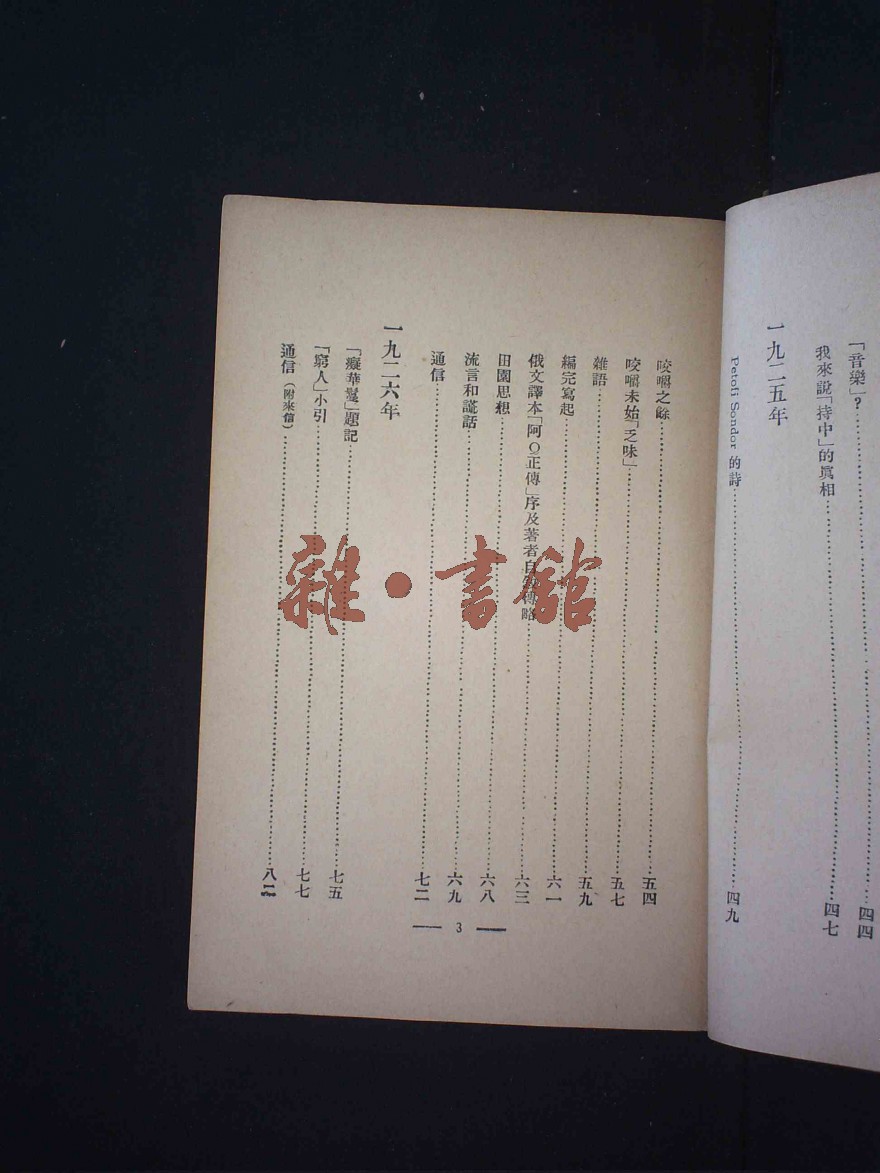 「音樂」?……四四
我來說「持中」的眞相……四七
一九二五年
Petofi Sondor 的詩……四九
咬嚼之餘……五四
咬嚼未始「乏味」……五七
雜語……五九
編完寫起……六一
俄文譯本「阿Q正傳」序及著者自敘傳略……六三
田園思想……六八
流言和謊話……六九
通信……七二
一九二六年
「癡華鬘」題記……七五
「窮人」小引……七七
通信(附來信)……八二
3
雜·書館